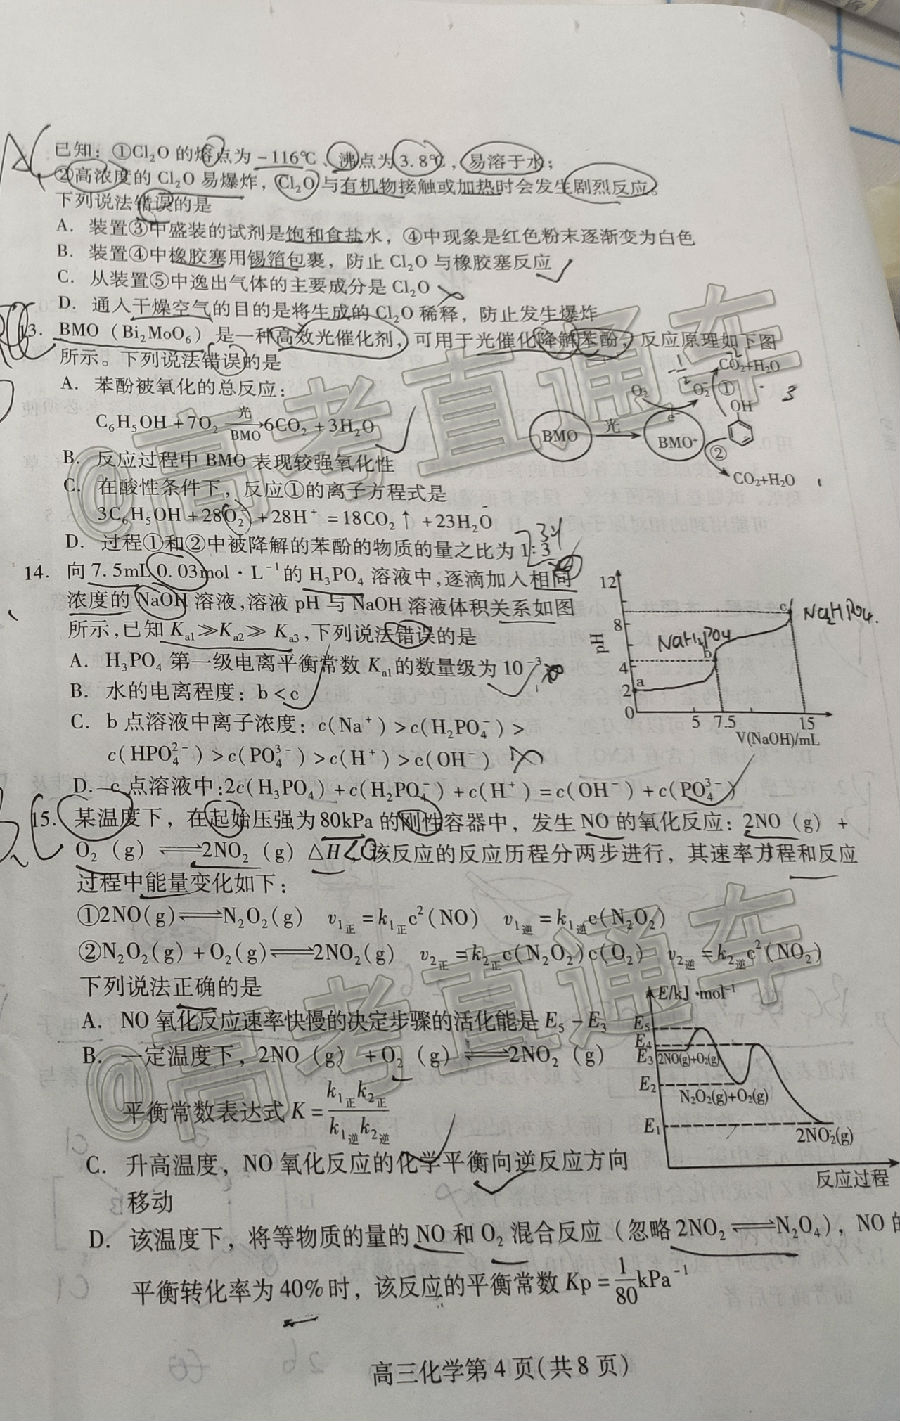 已知：①Cl₂O 的熔点为 -116℃、沸点为 3.8℃，易溶于水；
②高浓度的 Cl₂O 易爆炸，Cl₂O 与有机物接触或加热时会发生剧烈反应。
下列说法错误的是
A. 装置③中盛装的试剂是饱和食盐水，④中现象是红色粉末逐渐变为白色
B. 装置④中橡胶塞用锡箔包裹，防止 Cl₂O 与橡胶塞反应
C. 从装置⑤中逸出气体的主要成分是 Cl₂O
D. 通入干燥空气的目的是将生成的 Cl₂O 稀释，防止发生爆炸
13. BMO（Bi₂MoO₆）是一种高效光催化剂，可用于光催化降解苯酚，反应原理如下图
所示。下列说法错误的是
A. 苯酚被氧化的总反应：
C₆H₅OH + 7O₂ —光/BMO→ 6CO₂ + 3H₂O
B. 反应过程中 BMO 表现较强氧化性
C. 在酸性条件下，反应①的离子方程式是
3C₆H₅OH + 28O₂⁻ + 28H⁺ = 18CO₂↑ + 23H₂O
D. 过程①和②中被降解的苯酚的物质的量之比为 1:3
BMO 光 BMO⁺ e⁻ O₂ O₂⁻ ① OH ② CO₂+H₂O
CO₂+H₂O
3
14. 向 7.5mL 0.03mol·L⁻¹的 H₃PO₄ 溶液中，逐滴加入相同
浓度的 NaOH 溶液，溶液 pH 与 NaOH 溶液体积关系如图
所示，已知 Kₐ₁≫Kₐ₂≫Kₐ₃，下列说法错误的是
A. H₃PO₄ 第一级电离平衡常数 Kₐ₁的数量级为 10⁻³
B. 水的电离程度：b < c
C. b 点溶液中离子浓度：c(Na⁺) > c(H₂PO₄⁻) >
c(HPO₄²⁻) > c(PO₄³⁻) > c(H⁺) > c(OH⁻)
D. c 点溶液中：2c(H₃PO₄) + c(H₂PO₄⁻) + c(H⁺) = c(OH⁻) + c(PO₄³⁻)
pH 12 8 4 2 0 a b c 5 7.5 15
V(NaOH)/mL
NaH₂PO₄
Na₂HPO₄.
15. 某温度下，在起始压强为 80kPa 的刚性容器中，发生 NO 的氧化反应：2NO（g）+
O₂（g）⇌2NO₂（g）△H<0 该反应的反应历程分两步进行，其速率方程和反应
过程中能量变化如下：
①2NO(g)⇌N₂O₂(g) v₁正 = k₁正c²(NO) v₁逆 = k₁逆c(N₂O₂)
②N₂O₂(g) + O₂(g)⇌2NO₂(g) v₂正 = k₂正c(N₂O₂)c(O₂) v₂逆 = k₂逆c²(NO₂)
下列说法正确的是
A. NO 氧化反应速率快慢的决定步骤的活化能是 E₅ - E₃
B. 一定温度下，2NO（g）+ O₂（g）⇌2NO₂（g）
平衡常数表达式 K = k₁正k₂正/k₁逆k₂逆
C. 升高温度，NO 氧化反应的化学平衡向逆反应方向
移动
D. 该温度下，将等物质的量的 NO 和 O₂ 混合反应（忽略 2NO₂⇌N₂O₄），NO 的
平衡转化率为 40% 时，该反应的平衡常数 Kp = 1/80 kPa⁻¹
E/kJ·mol⁻¹
E₅
E₄
E₃ 2NO(g)+O₂(g)
E₂ N₂O₂(g)+O₂(g)
E₁ 2NO₂(g)
反应过程
高三化学第 4 页(共 8 页)
@高考直通车
@高考直通车